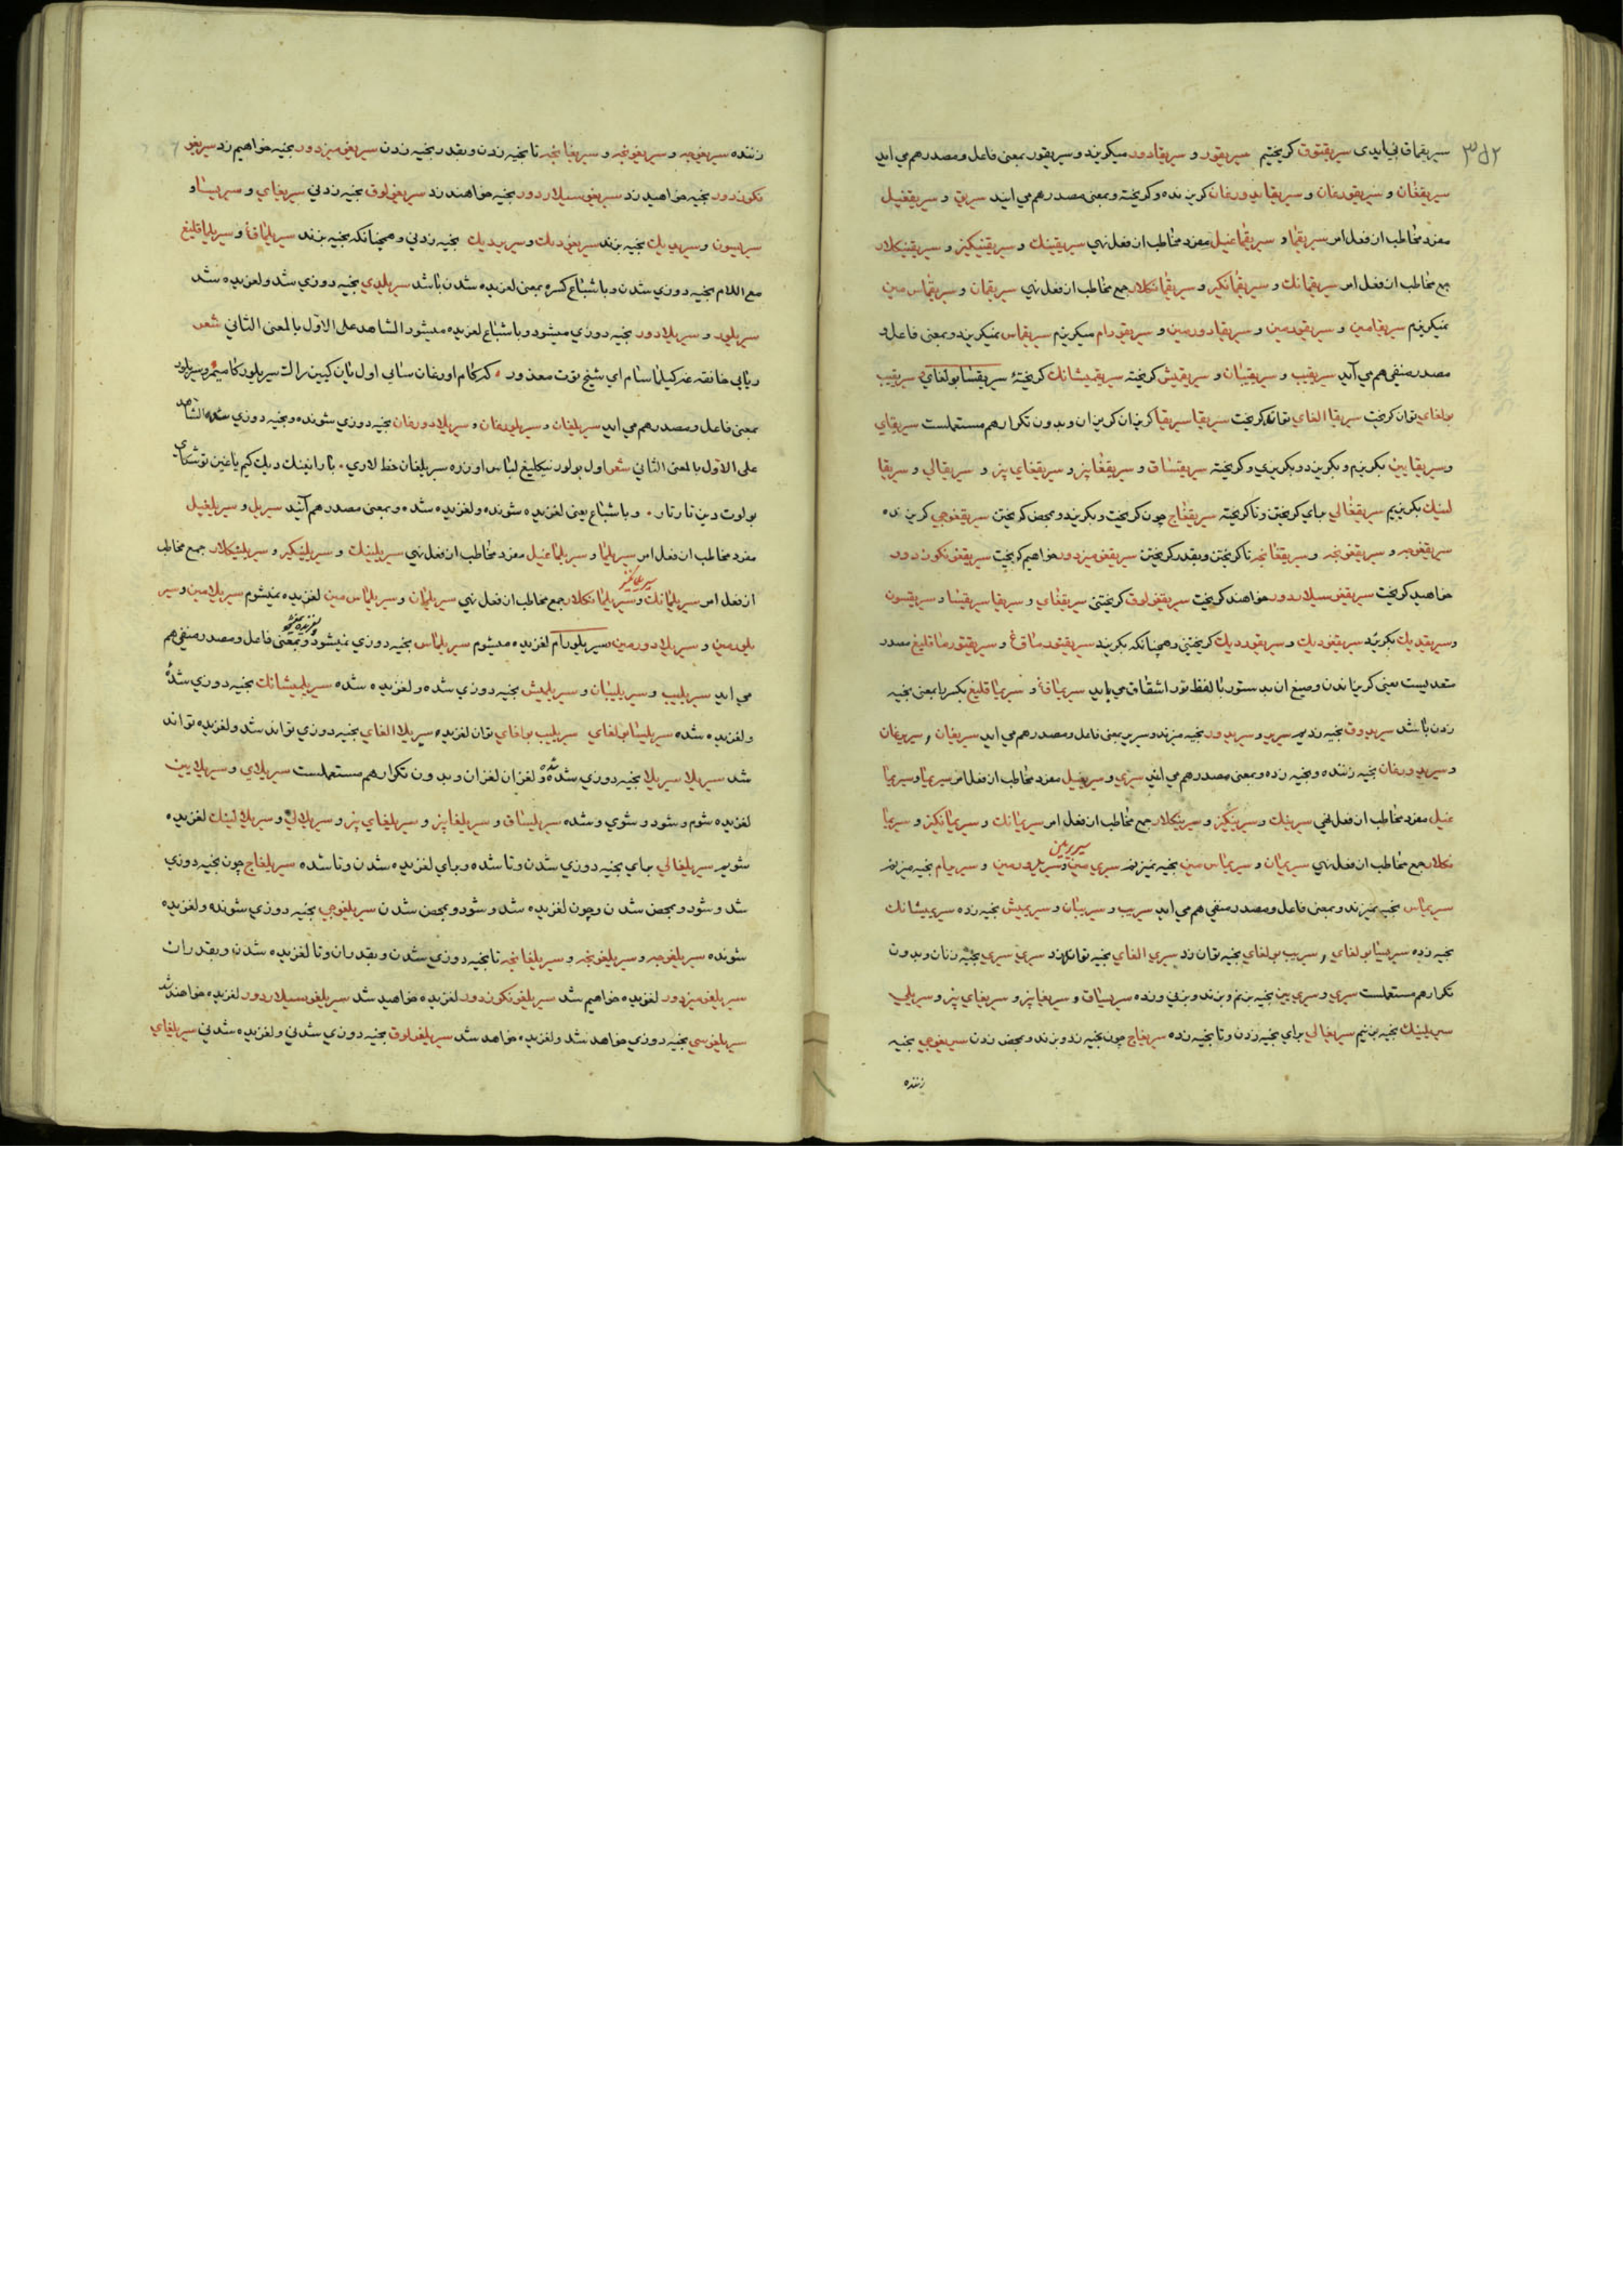 سریقماق نی ایدی سریقتوق کریختیم سریقور و سریقادور میکریزد و سریقور بمعنی فاعل و مصدر هم می اید
سریقغان و سریقورغان و سریقایدورغان کریزنده و کریخته و بمعنی مصدر هم می ایند سریق و سریقغیل
مفرد مخاطب از فعل امر سریقما و سریقماغیل مفرد مخاطب از فعل نهی سریقینك و سریقینکیز و سریقینکلار
جمع مخاطب از فعل امر سریقمانك و سریقمانکیز و سریقمانکلار جمع مخاطب از فعل نهی سریقمان و سریقماس مین
نمیکریزم سریقامین و سریقورمین و سریقادورمین و سریقورام میکریزم سریقماس نمیکریزد و بمعنی فاعل و
مصدر منفی هم می آید سریقیب و سریقیبان و سریقمیش کریخته سریقمیشانك کریختهٔ سریقسا بولغای سریقیب
بولغای توان کریخت سریقا الغای تواند کریخت سریقا سریقا کریزان کریزان و بدون تکرار هم مستعملست سریقای
و سریقایین بکریزم و بکریزد و بکریزی و کریخته سریقساق و سریقغایز و سریقغای بز و سریقالی و سریقا
لینك بکریزیم سریقغالی برای کریختن و تا کریخته سریقغاج چون کریخت و بکریزد و بمحض کریختن سریقغوجی کریزنده
سریقغوجه و سریقغونجه و سریقغانجه تا کریختن و بقدر کریختن سریقغومیزدور خواهیم کریخت سریقغونکوزدور
خواهید کریخت سریقغوسیلاردور خواهند کریخت سریقغولوق کریختنی سریقغای و سریقا سریقسا و سریقسون
و سریقدیك بکریزد سریقغودیك و سریقوردیك کریختنی و همچنانکه بکریزد سریقتورماق و سریقتورماقلیغ مصدر
متعدیست یعنی کریزاندن و صیغ ان بدستور با لفظ تور اشتقاق می یابد سریماق و سریماقلیغ بکسر را بمعنی بخیه
زدن باشد سریدوق بخیه زدیم سریر و سریدور بخیه میزند و سریر بمعنی فاعل و مصدر هم می اید سریغان و سریرغان
و سریدورغان بخیه زننده و بخیه زده و بمعنی مصدر هم می ایند سری و سریغیل مفرد مخاطب از فعل امر سریما و سریما
غیل مفرد مخاطب از فعل نهی سرینك و سرینکیز و سرینکلار جمع مخاطب از فعل امر سریمانك و سریمانکیز و سریما
نکلار جمع مخاطب از فعل نهی سریمان و سریماس مین بخیه نمیزنم سری مین و سریدورمین و سریرام بخیه میزنم
سریرمین
سریماس بخیه نمیزند و بمعنی فاعل و مصدر منفی هم می اید سریب و سریبان و سریمیش بخیه زده سریمیشانك
بخیه زده سریسا بولغای و سریب بولغای بخیه توان زد سری الغای بخیه تواند زد سری سری بخیه زنان و بدون
تکرار هم مستعملست سری و سری یین بخیه بزنم و بزند و بزنی و زده سریساق و سریغایز و سریغای بز و سریلی
سریلینك بخیه بزنیم سریغالی برای بخیه زدن و تا بخیه زده سریغاج چون بخیه زد و بزند و بمحض زدن سریغوجی بخیه
زننده
زننده سریغوجه و سریغونجه و سریغانجه تا بخیه زدن و بقدر بخیه زدن سریغومیزدور بخیه خواهیم زد سریغو
نکوزدور بخیه خواهید زد سریغوسیلاردور بخیه خواهند زد سریغولوق بخیه زدنی سریغای و سریسا و
سریسون و سریدیك بخیه بزند سریغودیك و سریردیك بخیه زدنی و همچنانکه بخیه بزند سریلماق و سریلماقلیغ
مع اللام بخیه دوزی شدن و باشباع کسره بمعنی لغزیده شدن باشد سریلدی بخیه دوزی شد و لغزیده شد
سریلور و سریلادور بخیه دوزی میشود و باشباع لغزیده میشود الشاهد علی الاوّل بالمعنی الثانی شعر
بمعنی فاعل و مصدر هم می اید سریلغان و سریلورغان و سریلادورغان بخیه دوزی شونده و بخیه دوزی شده الشاهد
علی الاوّل بالمعنی الثانی شعر اول بولور نیکلیغ لباس اوزره سریلغان خط لاری
بولوت دین تارتار و باشباع یعنی لغزیده شونده و لغزیده شده و بمعنی مصدر هم آیند سریل و سریلغیل
مفرد مخاطب از فعل امر سریلما و سریلماغیل مفرد مخاطب از فعل نهی سریلینك و سریلینکیز و سریلینکلار جمع مخاطب
از فعل امر سریلمانك و سریلمانکلار جمع مخاطب از فعل نهی سریلمان و سریلماس مین لغزیده نمیشوم سریلامین و سیر
سریلمانکیز
یلورمین و سریلادورمین سریلورام لغزیده میشوم سریلماس بخیه دوزی نمیشود و بمعنی فاعل و مصدر منفی هم
می اید سریلیب و سریلیبان و سریلمیش بخیه دوزی شده و لغزیده شده سریلمیشانك بخیه دوزی شدهٔ
و لغزیده شده سریلسا بولغای سریلیب بولغای توان لغزیده سریلا الغای بخیه دوزی تواند شد و لغزیده تواند
شد سریلا سریلا بخیه دوزی شده و لغزان لغزان و بدون تکرار هم مستعملست سریلای و سریلایین
لغزیده شوم و شود و شوی و شده سریلساق و سریلغایز و سریلغای بز و سریلالی و سریلالینك لغزیده
شویم سریلغالی برای بخیه دوزی شدن و تا شده و برای لغزیده شدن و تا شده سریلغاج چون بخیه دوزی
شد و شود و بمحض شدن و چون لغزیده شد و شود و بمحض شدن سریلغوجی بخیه دوزی شونده و لغزیده
شونده سریلغوجه و سریلغونجه و سریلغانجه تا بخیه دوزی شدن و بقدر ان و تا لغزیده شدن و بقدر ان
سریلغومیزدور لغزیده خواهیم شد سریلغونکوزدور لغزیده خواهید شد سریلغوسیلاردور لغزیده خواهند شد
سریلغوسی بخیه دوزی خواهد شد و لغزیده خواهد شد سریلغولوق بخیه دوزی شدنی و لغزیده شدنی سریلغای